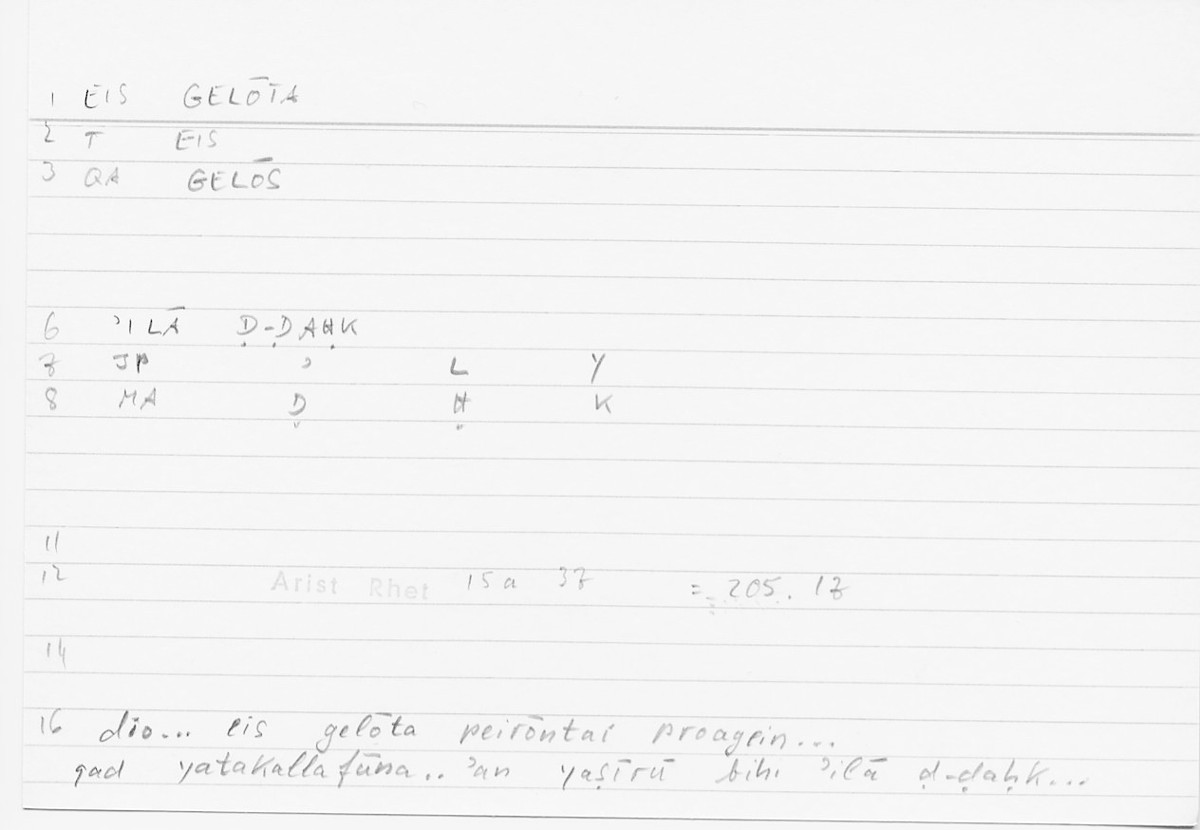 1 EIS GELŌTA
2 T EIS
3 QA GELŌS
6 ʾILĀ Ḍ-ḌAḤK
7 JP ʾ L Y
8 MA Ḍ Ḥ K
11
12 Arist Rhet 15a 37 = 205.17
14
16 dio... eis gelōta peirōntai proagein...
qad yatakallafūna.. ʾan yaṣīrū bihi ʾilā ḍ-ḍaḥk...